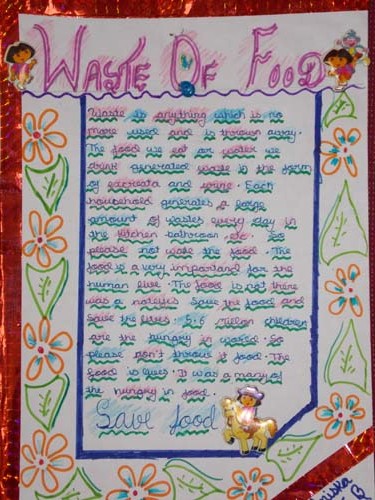 Waste Of Food
Waste is anything which is no
more used and is thrown away.
The food we eat or water we
drink generated waste in the form
of excreata and urine. Each
household generates a large
amount of wastes every day in
the kitchen bathroom etc. So
please not waste the food. The
food is a very important for the
human live. The food is not there
was a Save the food and
Save the lives 5-6 million children
are the hungry in world. So
please don't throw it food. The
food is lives. It was a many of
the hungry in food.
Save food